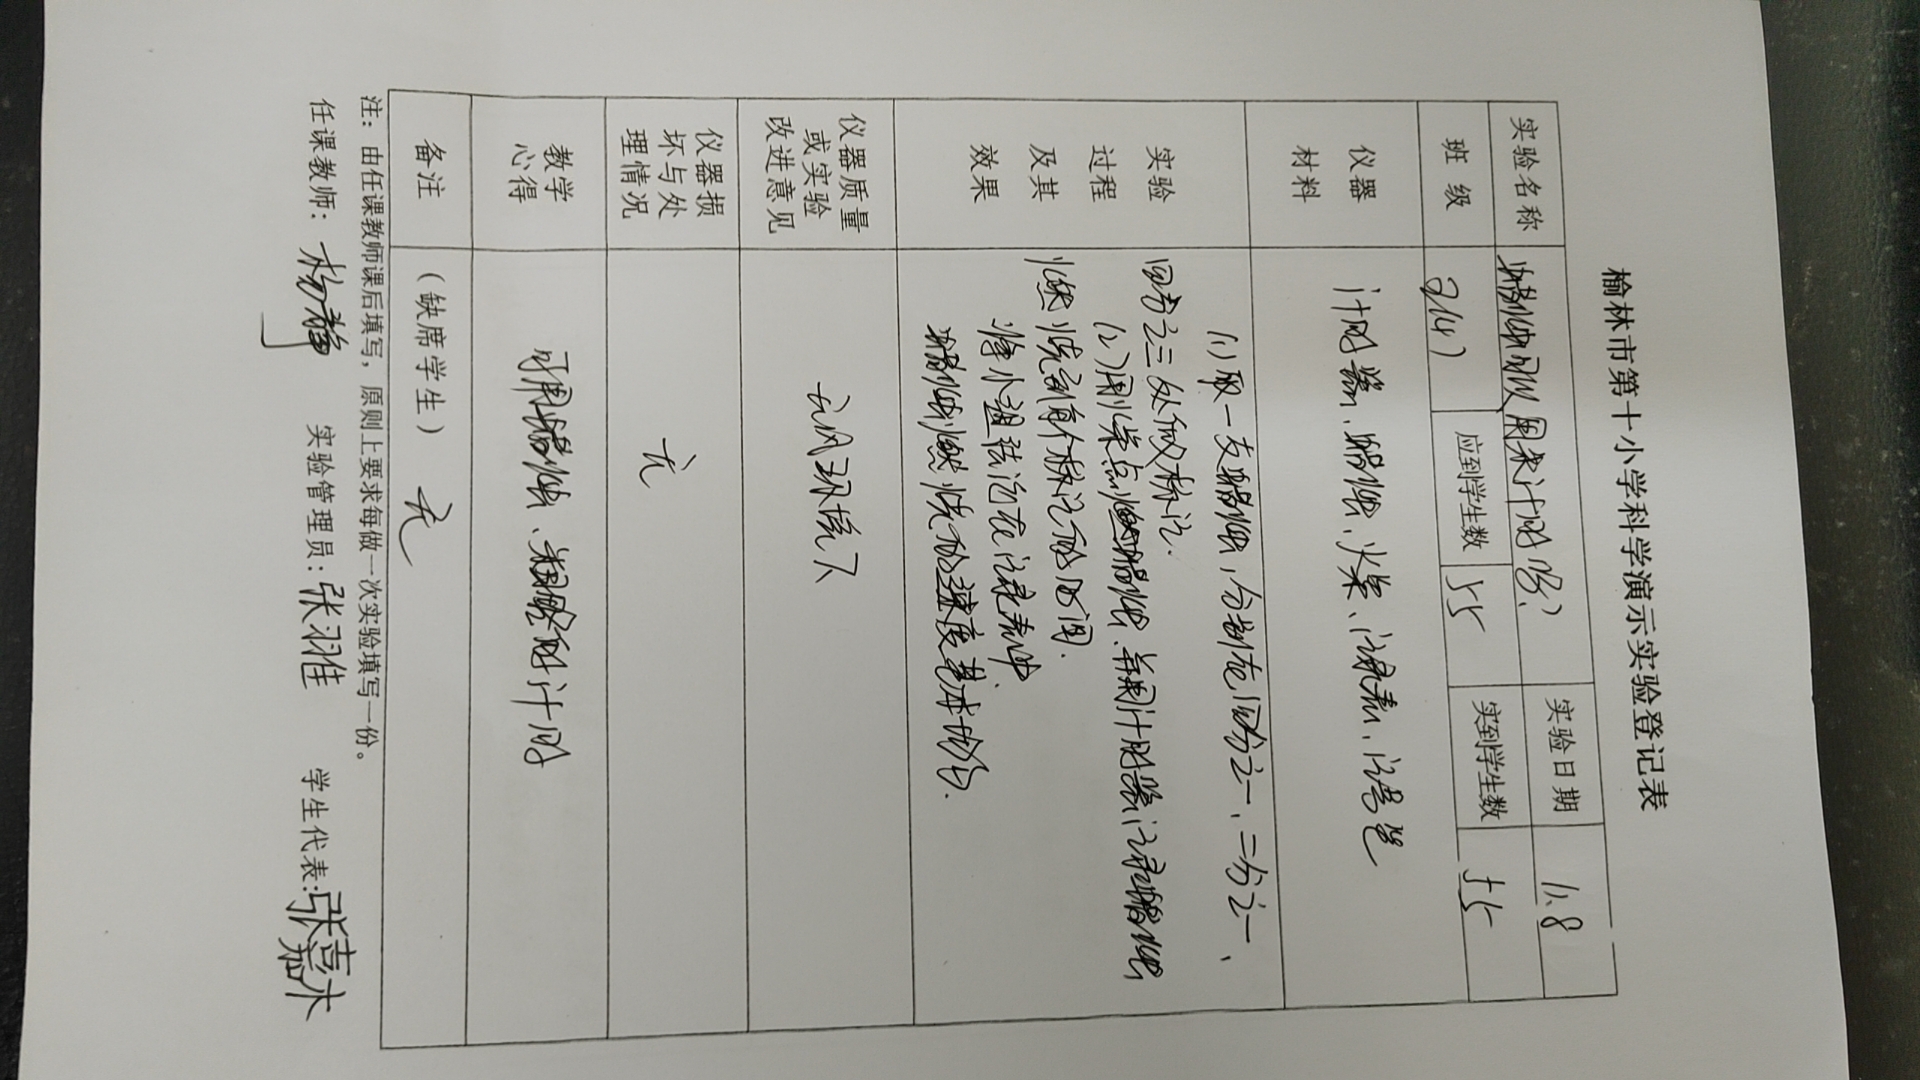 榆林市第十小学科学演示实验登记表
实验名称 蜡烛可以用来计时吗? 实验日期 11.8
班 级 3(4) 应到学生数 55 实到学生数 55
仪器
材料
计时器、蜡烛、火柴、记录表、记号笔
实验
过程
及其
效果
(1)取一支蜡烛,分别在四分之一、二分之一、
四分之三处做标记.
(2)用火柴点燃蜡烛.并用计时器记录蜡烛
燃烧到每个标记的时间.
将小组活动在记录表中
蜡烛燃烧的速度基本均匀.
仪器质量
或实验
改进意见
无风环境下
仪器损
坏与处
理情况
无
教学
心得
可用蜡烛、粗略计时
备注
(缺席学生) 无
注:由任课教师课后填写,原则上要求每做一次实验填写一份。
任课教师: 杨静 实验管理员: 张翔 学生代表: 张嘉水